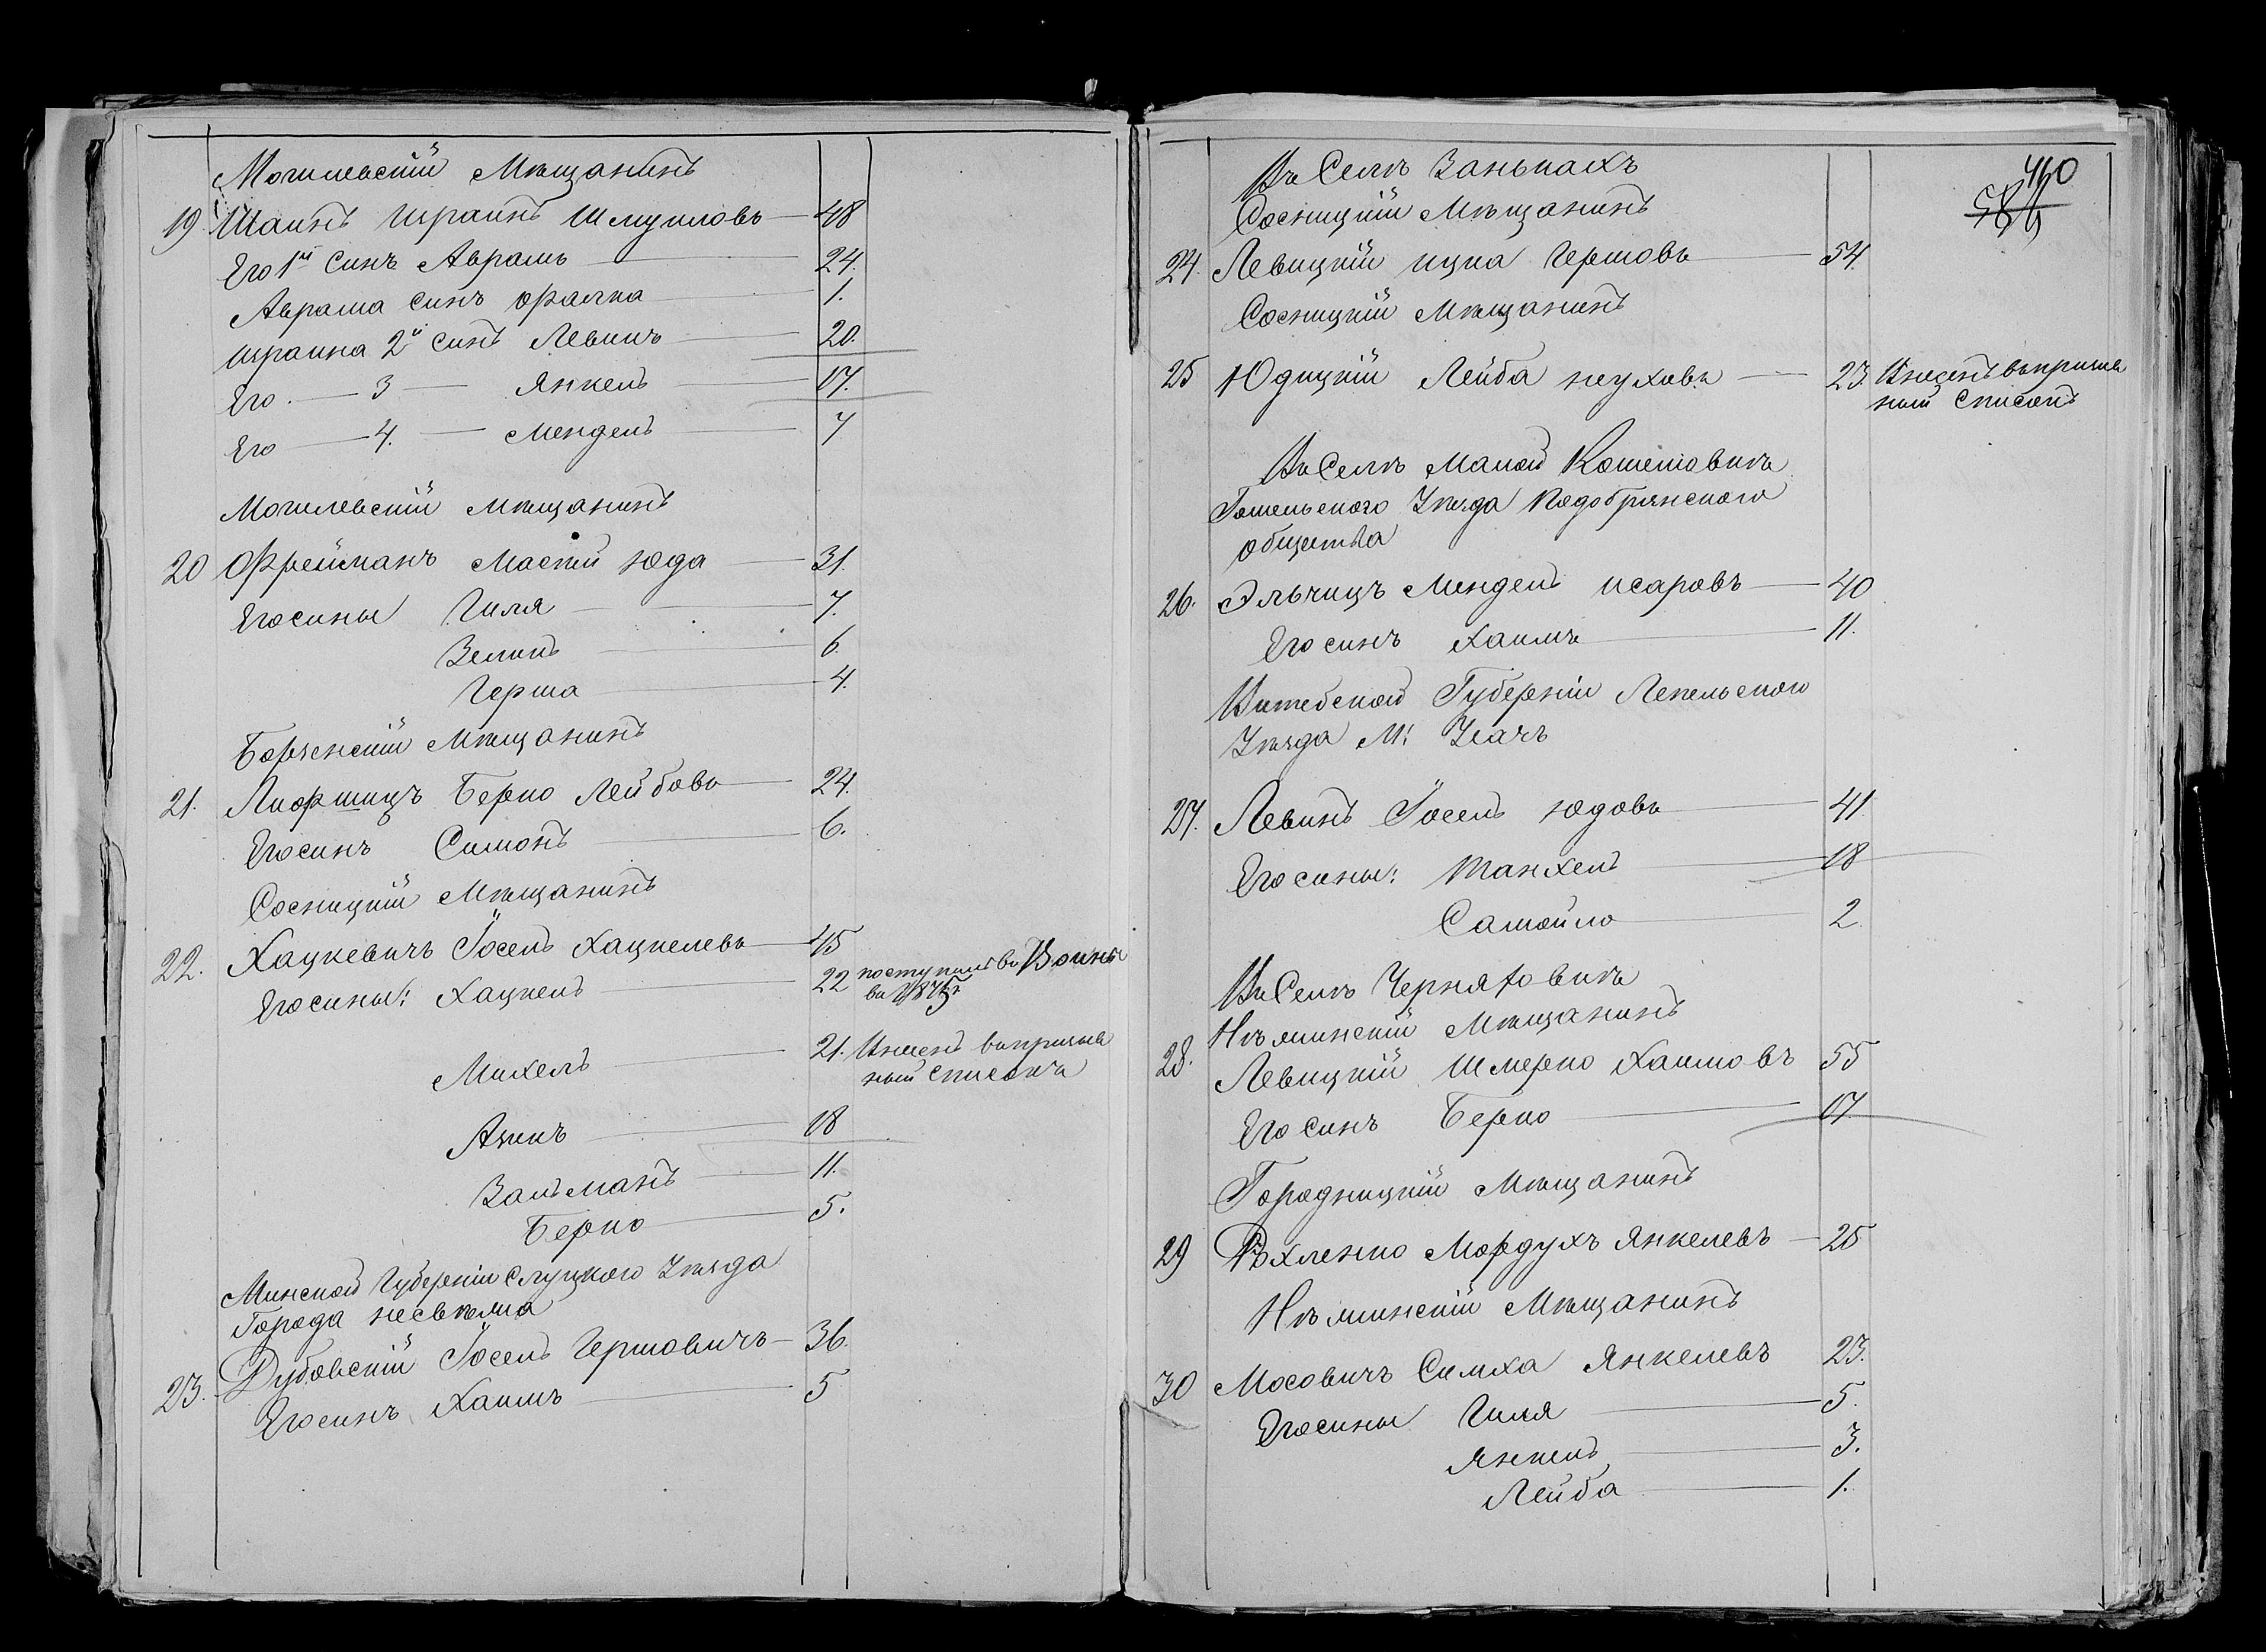 Могилевскій Мѣщанинъ
19 Шаинъ Израиль Шмуиловъ — 48
Его 1й синъ Абрамъ — 24.
Абрама синъ Фраика — 1.
Израиля 2й синъ Левикъ — 20.
Его — 3 — Янкель — 17.
Его — 4. — Мендель — 7
Могилевскій мѣщанинъ
20 Фрейманъ юда — 31.
Его сины Гиля — 7.
Зеликъ — 6
Герша — 4.
Борзенскій Мѣщанинъ
21. Лифшицъ Берко Лейбовъ — 24.
Его синъ Симонъ — 6.
Сосницкій Мѣщанинъ
22. Хацкевичъ Іосель Хацкелевъ — 45
Его сины: Хацкель — 22 поступилъ въ Воины
въ 1875г
Михель — 21. Внесенъ въ призыв
ный списокъ
Азикъ — 18
Залманъ — 11.
Берко — 5.
Минской Губерніи Слуцкого Уѣзда
Города несвѣжа
23. Дубовскій Іосель Гершовичъ — 36.
Его синъ Хаимъ — 5
410
586
Въ Селѣ Занькахъ
Сосницкій Мѣщанинъ
24. Левицкій ицка Гершовъ — 54.
Сосницкій Мѣщанинъ
25 Юдицкій Лейба неуховъ — 23. Внесенъ въ призыв
ный списокъ
Въ Селѣ Малой Кошелевкѣ
Гомельского Уѣзда Подобрянского
общества
26. Эльчицъ Мендель исаровъ — 40
Его синъ Хаимъ — 11.
Витебской Губерніи Лепельского
Уѣзда М: Ушачъ
27. Левинъ Іосель юдовъ — 41
Его сины: Танхель — 18
Самойло — 2
Въ Селѣ
Нѣжинскій Мѣщанинъ
28. Левицкій Шмерко Хаимовъ 55
Его синъ Берко — 17.
Городницкій Мѣщанинъ
29 Рохленко Мордухъ Янкелевъ — 25
Нѣжинскій Мѣщанинъ
30 Мосовичъ Симха Янкелевъ 23.
Его сины Гиля — 5.
Янкель — 3.
Лейба — 1.